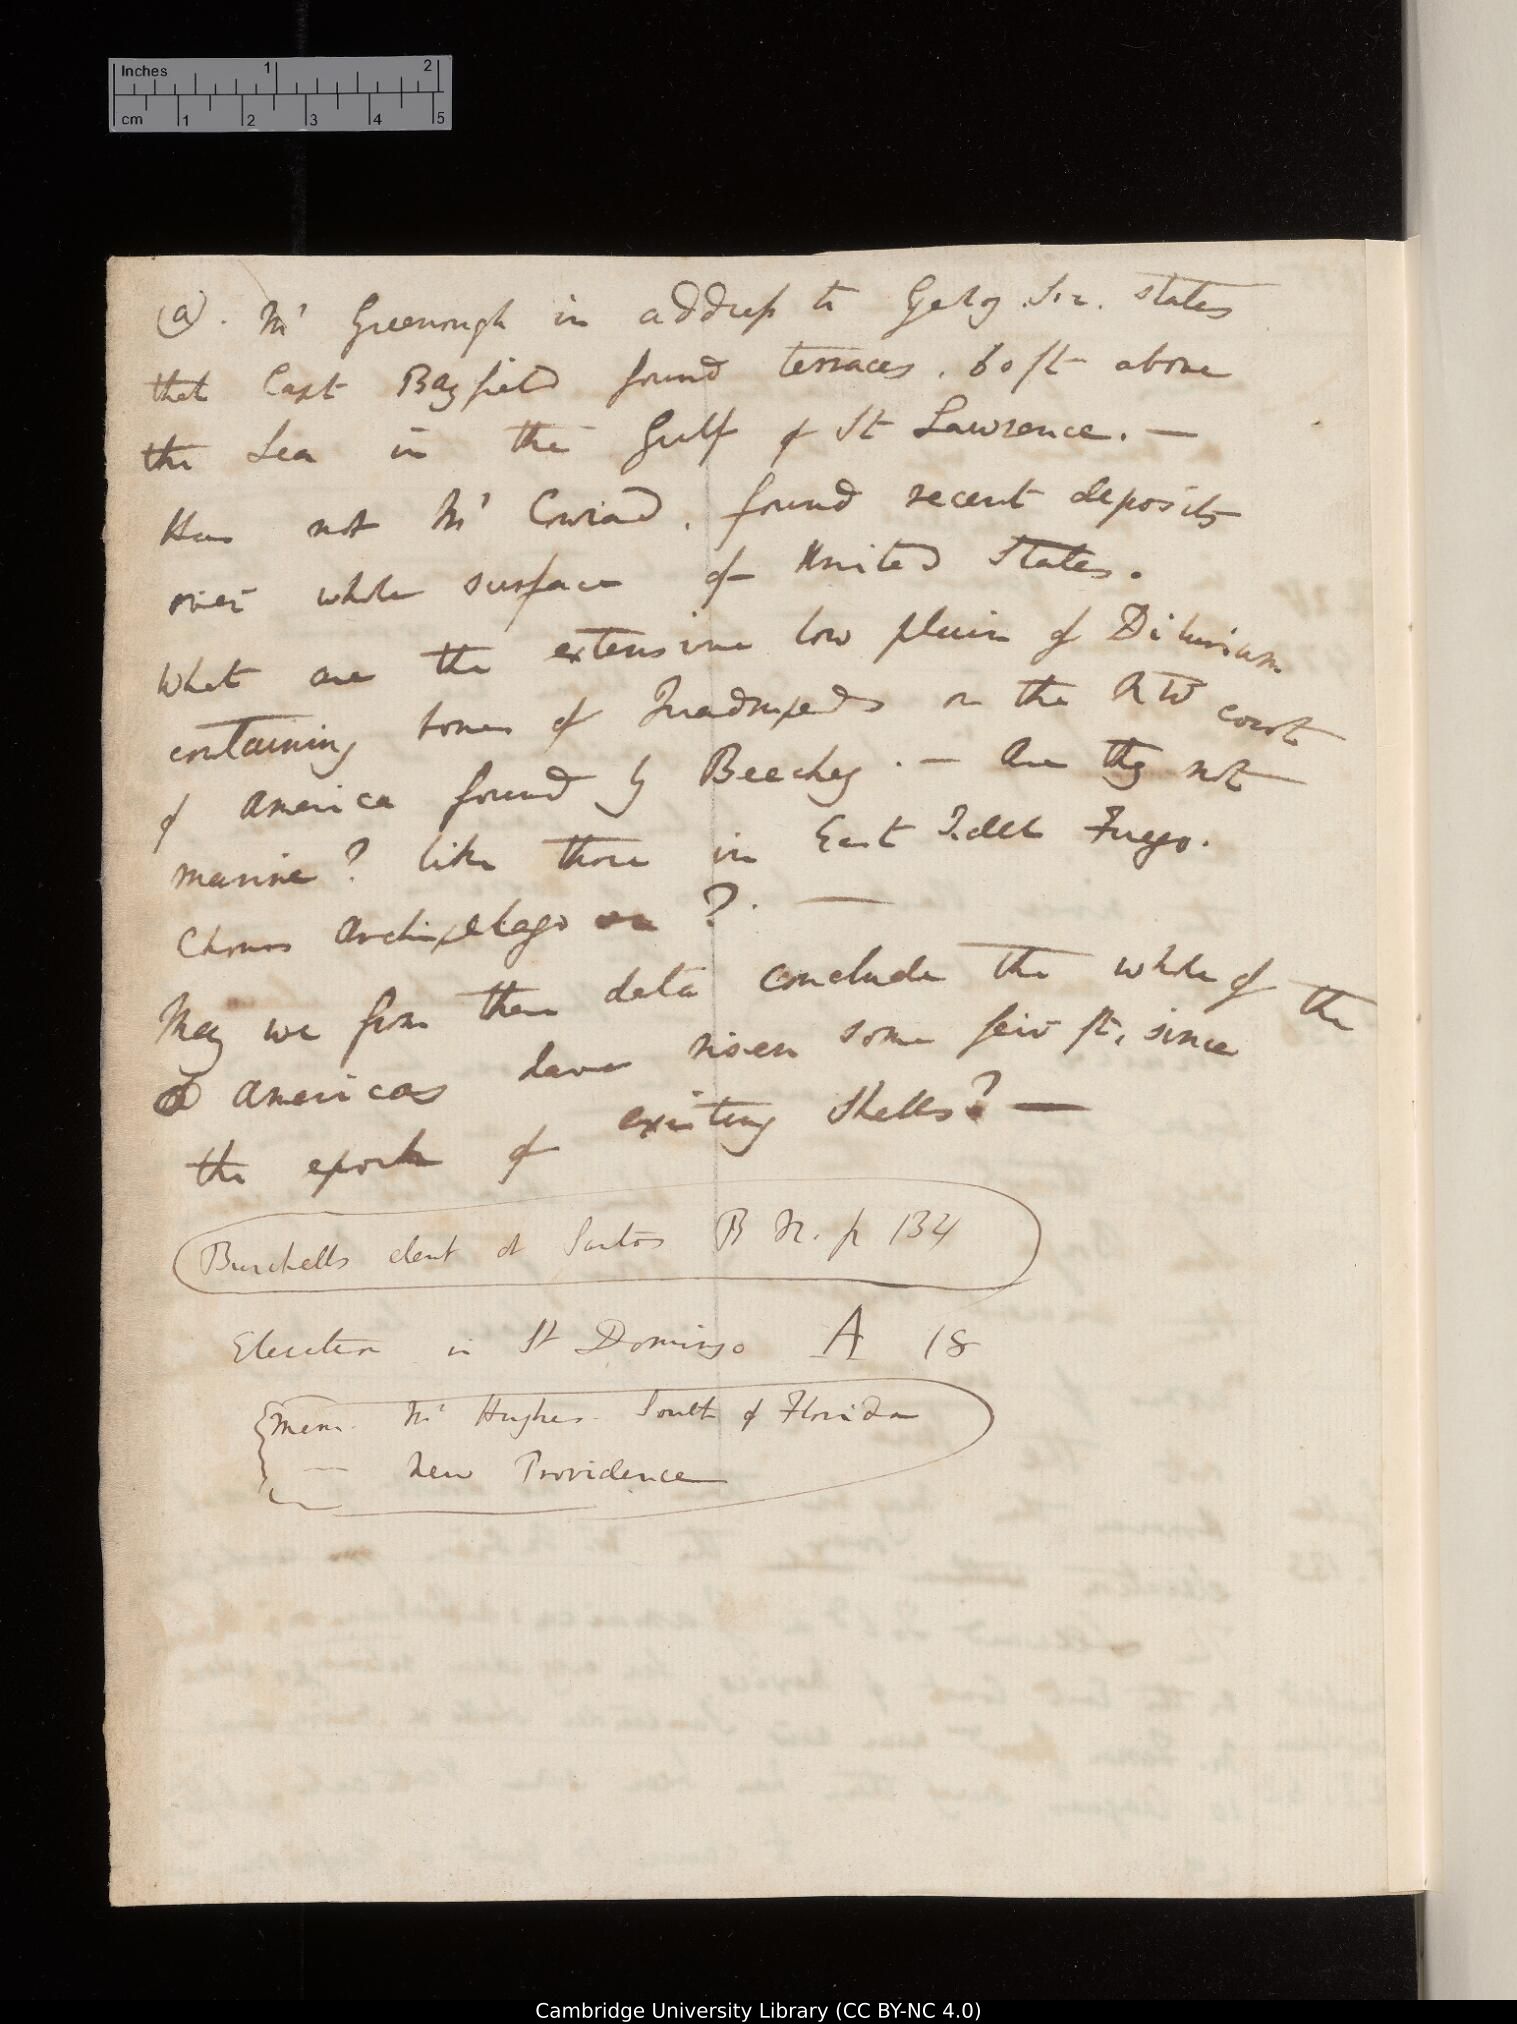 Inches 1 2
cm 1 2 3 4 5
(a). Mr Greenough in address to Geolog. Soc. states
that Capt Bayfield found terraces. 60 ft above
the Sea in the Gulf of St Lawrence. —
Has not Mr Conrad. found recent deposits
over whole surface of United States.
What are the extensive low plain of Diluvium
containing bones of Quadrupeds on the NW coast
of America found by Beechey. — Are they not
marine? like those in East Tdel Fuego.
Chonos Archipelago ?. —
May we from these data conclude the whole of the
Americas have risen some few ft, since
the epoch of existing Shells? —
Burchells at Santos B N. p 134
Elevation in St Domingo A 18
Mem. Mr Hughes. South of Florida
— New Providence
Cambridge University Library (CC BY-NC 4.0)